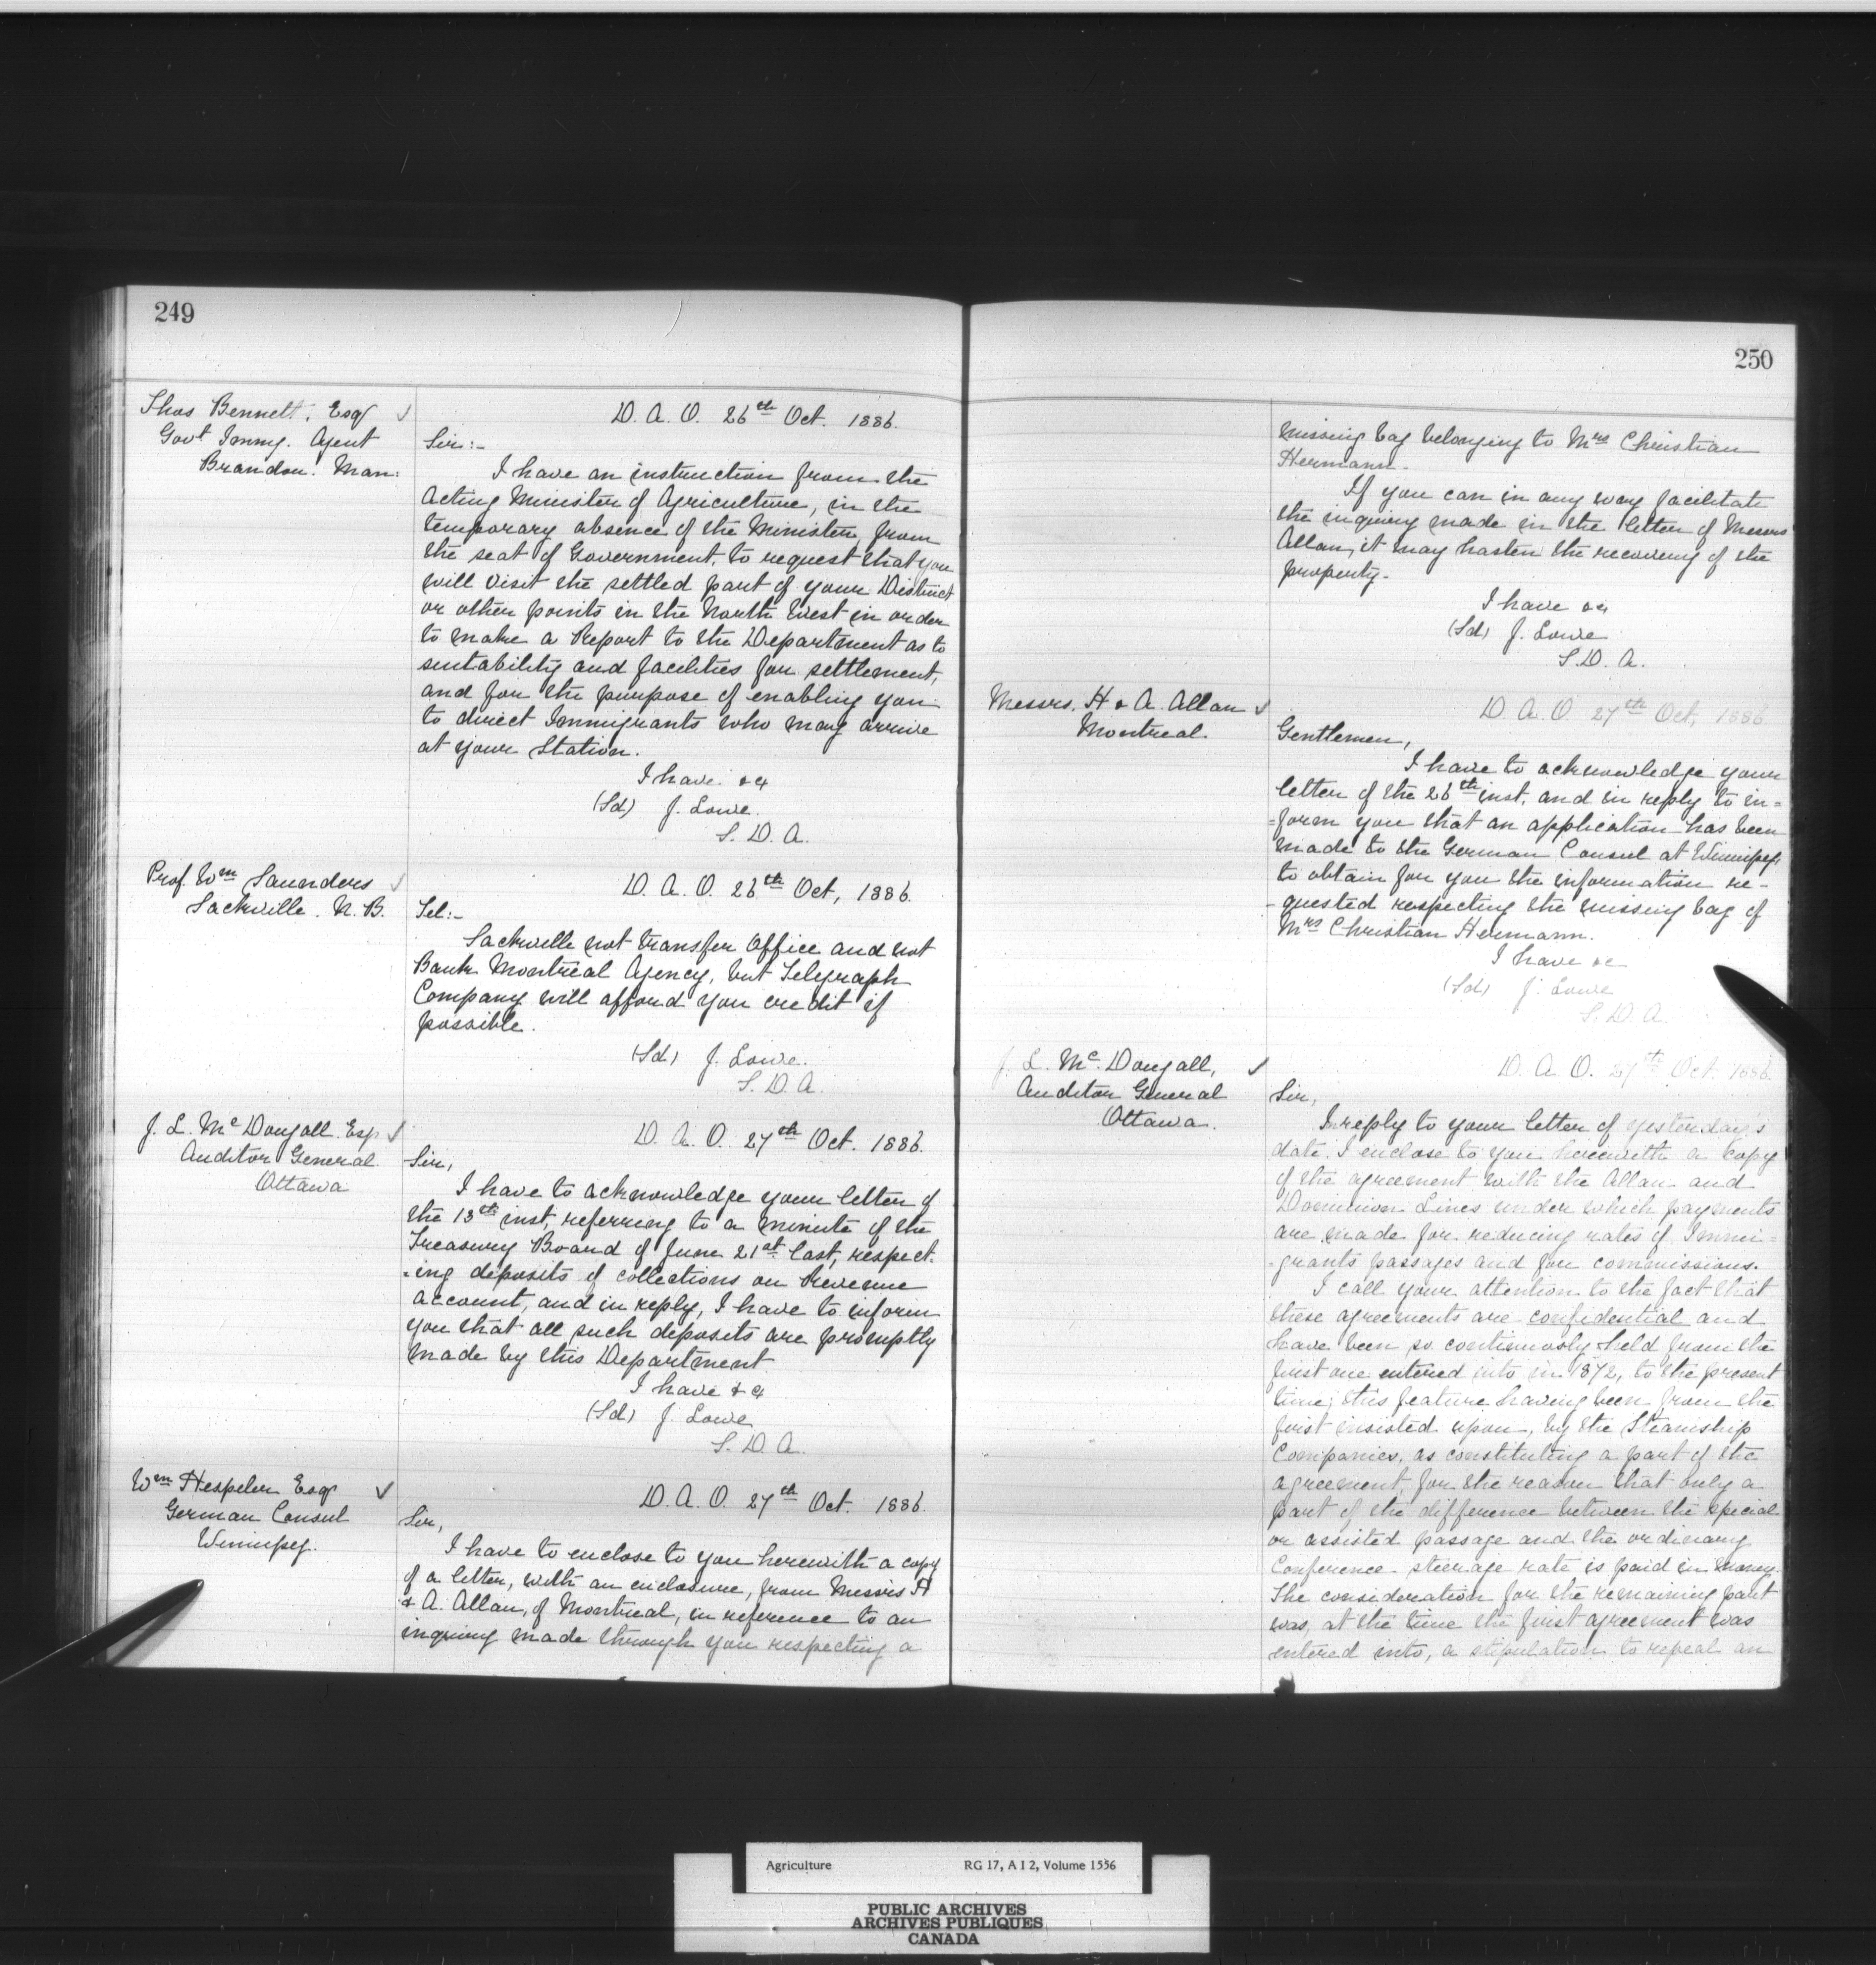 249
Thos Bennett, Esq
Govt Immg. Agent
Brandon. Man:
D. A. O. 26th Oct. 1886.
Sir:-
I have an instruction from the
Acting Minister of Agriculture, in the
temporary absence of the Minister from
the seat of Government, to request that you
will visit the settled part of your District
or other points in the North West in order
to make a Report to the Department as to
suitability and facilities for settlement,
and for the purpose of enabling you
to direct Immigrants who may arrive
at your Station.
I have &c
(Sd) J. Lowe.
S. D. A.
Prof. Wm Saunders
Sackville. N. B.
D. A. O. 26th Oct, 1886.
Tel:-
Sackville not transfer Office and not
Bank Montreal Agency, but Telegraph
Company will afford you credit if
possible.
(Sd) J. Lowe.
S. D. A.
J. L. McDougall Esq
Auditor General
Ottawa
D. A. O. 27th Oct. 1886.
Sir,
I have to acknowledge your letter of
the 13th inst, referring to a minute of the
Treasury Board of June 21st last, respect-
-ing deposits of collections on Revenue
account, and in reply, I have to inform
you that all such deposits are promptly
made by this Department
I have &c
(Sd) J. Lowe
S. D. A.
Wm Hespeler Esqr
German Consul
Winnipeg.
D. A. O. 27th Oct. 1886.
Sir,
I have to enclose to you herewith a copy
of a letter, with an enclosure, from Messrs H
& A. Allan, of Montreal, in reference to an
inquiry made through you respecting a
250
missing bag belonging to Mrs Christian
Hermann.
If you can in any way facilitate
the inquiry made in the letter of Messrs
Allan, it may hasten the recovery of the
property.
I have &c
(Sd) J. Lowe
S. D. A.
Messrs. H & A. Allan
Montreal.
D. A. O. 27th Oct, 1886
Gentlemen,
I have to acknowledge your
letter of the 26th inst, and in reply to in=
=form you that an application has been
made to the German Consul at Winnipeg,
to obtain for you the information re-
-quested respecting the missing bag of
Mrs Christian Hermann.
I have &c
(Sd) J. Lowe
S. D. A.
J. L. McDougall,
Auditor General
Ottawa.
D. A. O. 27th Oct. 1886.
Sir,
In reply to your letter of yesterday's
date, I enclose to you herewith a copy
of the agreement with the Allan and
Dominion Lines under which payments
are made for reducing rates of Immi=
-grants passages and for commissions.
I call your attention to the fact that
these agreements are confidential and
have been so continuously held from the
first one entered into in 1872, to the present
time; this feature having been from the
first insisted upon, by the Steamship
Companies, as constituting a part of the
agreement, for the reason that only a
part of the difference between the special
or assisted passage and the ordinary
Conference steerage rate is paid in money.
The consideration for the remaining part
was, at the time the first agreement was
entered into, a stipulation to repeal an
Agriculture RG 17, A I 2, Volume 1556
PUBLIC ARCHIVES
ARCHIVES PUBLIQUES
CANADA